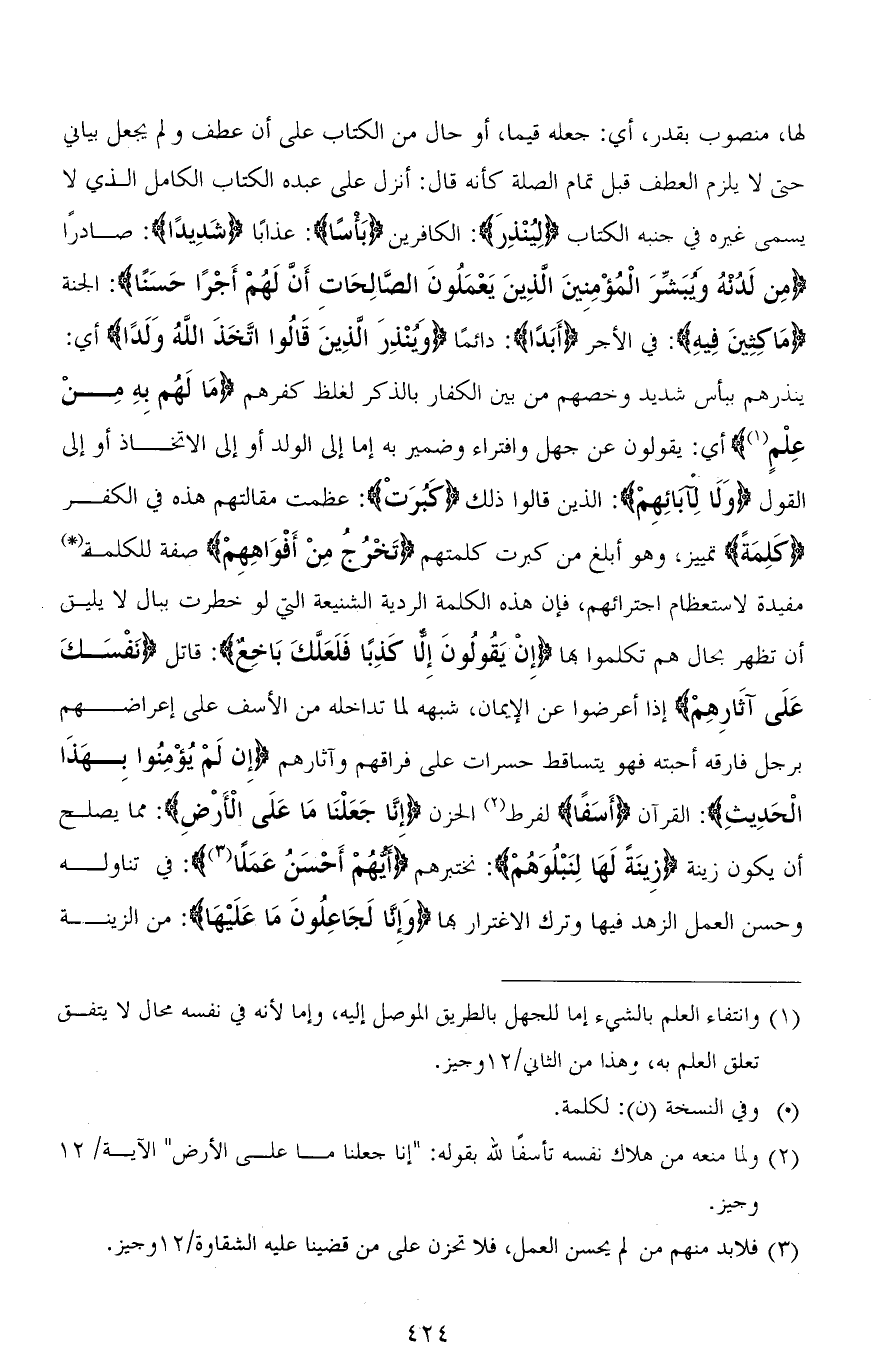 لها، منصوب بقدر، أي: جعله قيما، أو حال من الكتاب على أن عطف و لم يجعل بياني
حتى لا يلزم العطف قبل تمام الصلة كأنه قال: أنزل على عبده الكتاب الكامل الـذي لا
يسمى غيره في جنبه الكتاب ﴿لِيُنْذِرَ﴾: الكافرين ﴿بَأْسًا﴾: عذابًا ﴿شَدِيدًا﴾: صـــادرًا
﴿مِن لَدُنْهُ وَيُبَشِّرَ الْمُؤْمِنِينَ الَّذِينَ يَعْمَلُونَ الصَّالِحَاتِ أَنَّ لَهُمْ أَجْرًا حَسَنًا﴾: الجنة
﴿مَاكِثِينَ فِيهِ﴾: في الأجر ﴿أَبَدًا﴾: دائمًا ﴿وَيُنْذِرَ الَّذِينَ قَالُوا اتَّخَذَ اللَّهُ وَلَدًا﴾ أي:
ينذرهم ببأس شديد وخصهم من بين الكفار بالذكر لغلظ كفرهم ﴿مَا لَهُم بِهِ مِـــنْ
عِلْمٍ(١)﴾ أي: يقولون عن جهل وافتراء وضمير به إما إلى الولد أو إلى الاتخـــاذ أو إلى
القول ﴿وَلَا لِآبَائِهِمْ﴾: الذين قالوا ذلك ﴿كَبُرَتْ﴾: عظمت مقالتهم هذه في الكفـــر
﴿كَلِمَةً﴾ تمييز، وهو أبلغ من كبرت كلمتهم ﴿تَخْرُجُ مِنْ أَفْوَاهِهِمْ﴾ صفة للكلمـة(*)
مفيدة لاستعظام اجترائهم، فإن هذه الكلمة الردية الشنيعة التي لو خطرت ببال لا يليـق
أن تظهر بحال هم تكلموا بها ﴿إِنْ يَقُولُونَ إِلَّا كَذِبًا فَلَعَلَّكَ بَاخِعٌ﴾: قاتل ﴿نَفْسَـــكَ
عَلَى آثَارِهِمْ﴾ إذا أعرضوا عن الإيمان، شبهه لما تداخله من الأسف على إعراضـــهم
برجل فارقه أحبته فهو يتساقط حسرات على فراقهم وآثارهم ﴿إِن لَمْ يُؤْمِنُوا بِـــهَذَا
الْحَدِيثِ﴾: القرآن ﴿أَسَفًا﴾ لفرط(٢) الحزن ﴿إِنَّا جَعَلْنَا مَا عَلَى الْأَرْضِ﴾: مما يصلـح
أن يكون زينة ﴿زِينَةً لَهَا لِنَبْلُوَهُمْ﴾: نختبرهم ﴿أَيُّهُمْ أَحْسَنُ عَمَلًا(٣)﴾: في تناولـــه
وحسن العمل الزهد فيها وترك الاغترار بها ﴿وَإِنَّا لَجَاعِلُونَ مَا عَلَيْهَا﴾: من الزينـــة
(١) وانتفاء العلم بالشيء إما للجهل بالطريق الموصل إليه، وإما لأنه في نفسه محال لا يتفـق
تعلق العلم به، وهذا من الثاني/١٢وجيز.
(٠) وفي النسخة (ن): لكلمة.
(٢) ولما منعه من هلاك نفسه تأسفًا لله بقوله: "إنا جعلنا مـــا علـــى الأرض" الآيـــة/ ١٢
وجيز.
(٣) فلابد منهم من لم يحسن العمل، فلا تحزن على من قضينا عليه الشقاوة/١٢وجيز.
٤٢٤